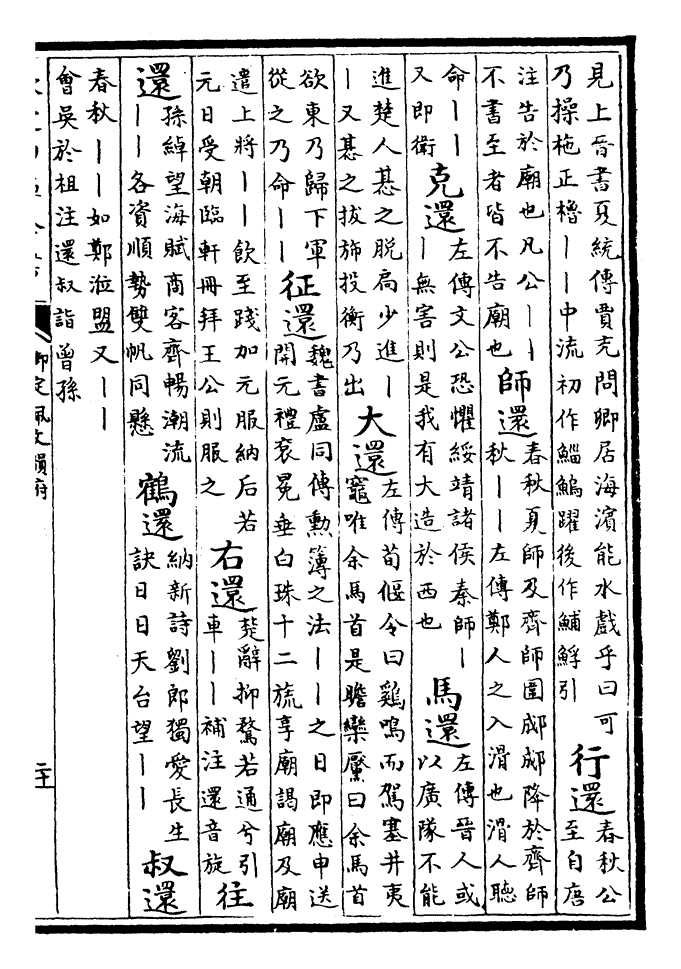 見上晉書夏統傳賈充問卿居海濱能水戲乎曰可
乃操柂正櫓丨丨中流初作鯔鷠躍後作鯆䱐引
行還
春秋公
至自唐
注告於廟也凡公丨丨
不書至者皆不告廟也
師還
春秋夏師及齊師圍郕郕降於齊師
秋丨丨左傳鄭人之入滑也滑人聽
命丨丨
又即衛
克還
左傳文公恐懼綏靖諸侯秦師丨
丨無害則是我有大造於西也
馬還
左傳晉人或
以廣隊不能
進楚人惎之脫扃少進丨
丨又惎之拔斾投衡乃出
大還
左傳荀偃令曰雞鳴而駕塞井夷
竈唯余馬首是瞻欒黶曰余馬首
欲東乃歸下軍
從之乃命丨丨
征還
魏書盧同傳勳簿之法丨丨之日即應申送
開元禮衮冕垂白珠十二旒享廟謁廟及廟
遣上將丨丨飲至踐加元服納后若
元日受朝臨軒冊拜王公則服之
右還
楚辭抑騖若通兮引
車丨丨補注還音旋
往
還
孫綽望海賦商客齊暢潮流
丨丨各資順勢雙帆同懸
鶴還
納新詩劉郎獨愛長生
訣日日天台望丨丨
叔還
春秋丨丨如鄭涖盟又丨丨
會吳於祖注還叔詣曾孫
御定佩文韻府
二十